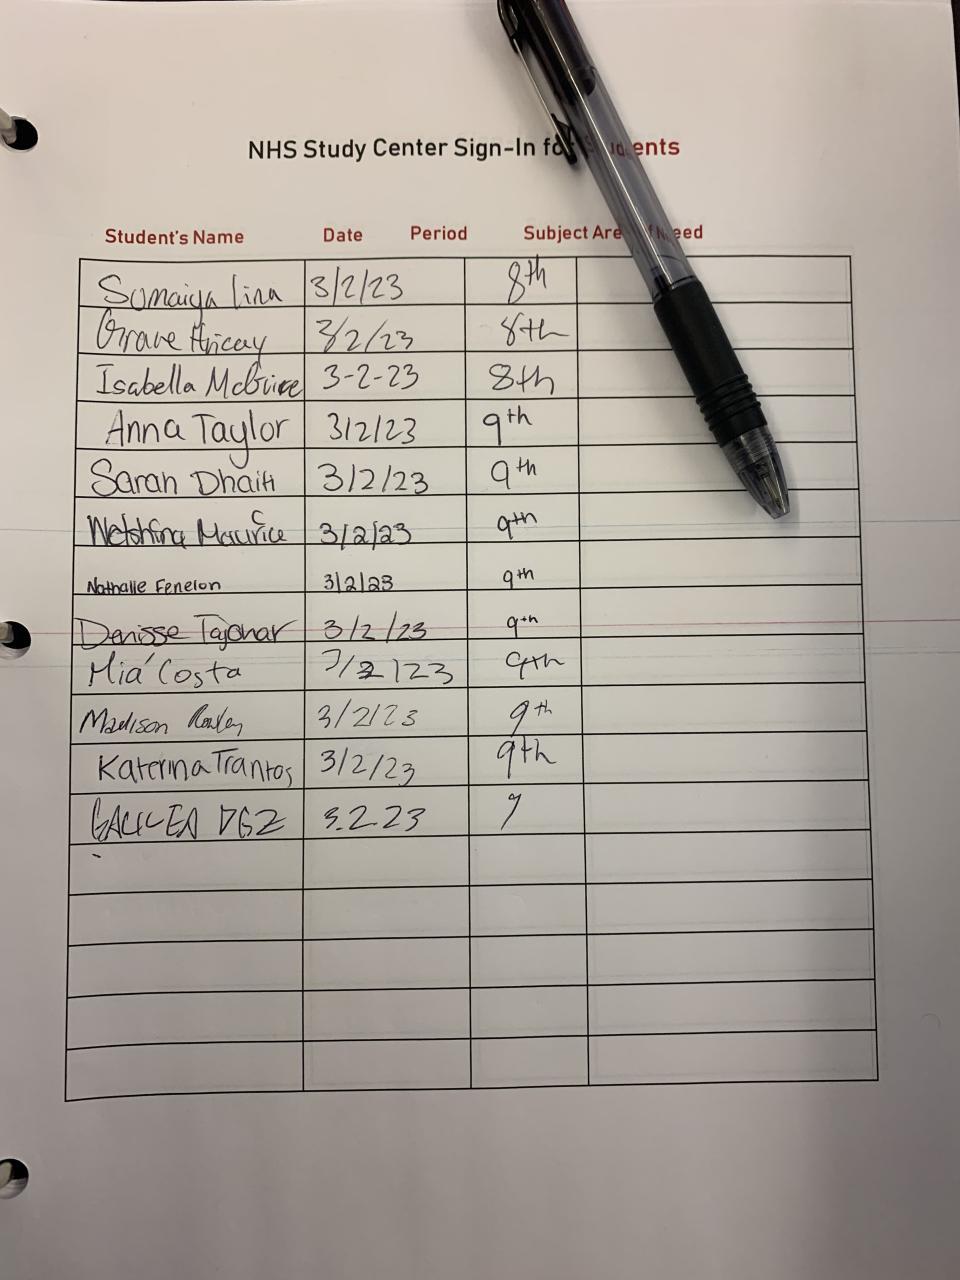 NHS Study Center Sign-In for Students
Student's Name Date Period Subject Area of Need
Sumaiya Lina 3/2/23 8th
3/2/23 8th
Isabella McGuire 3-2-23 8th
Anna Taylor 3/2/23 9th
Sarah Dhaiti 3/2/23 9th
Maurice 3/2/23 9th
Nathalie Fenelon 3/2/23 9th
Denisse Tajonar 3/2/23 9th
Mia Costa 3/2/23 9th
Madison 3/2/23 9th
Katerina Trantos 3/2/23 9th
GALILEA DGZ 3.2.23 9